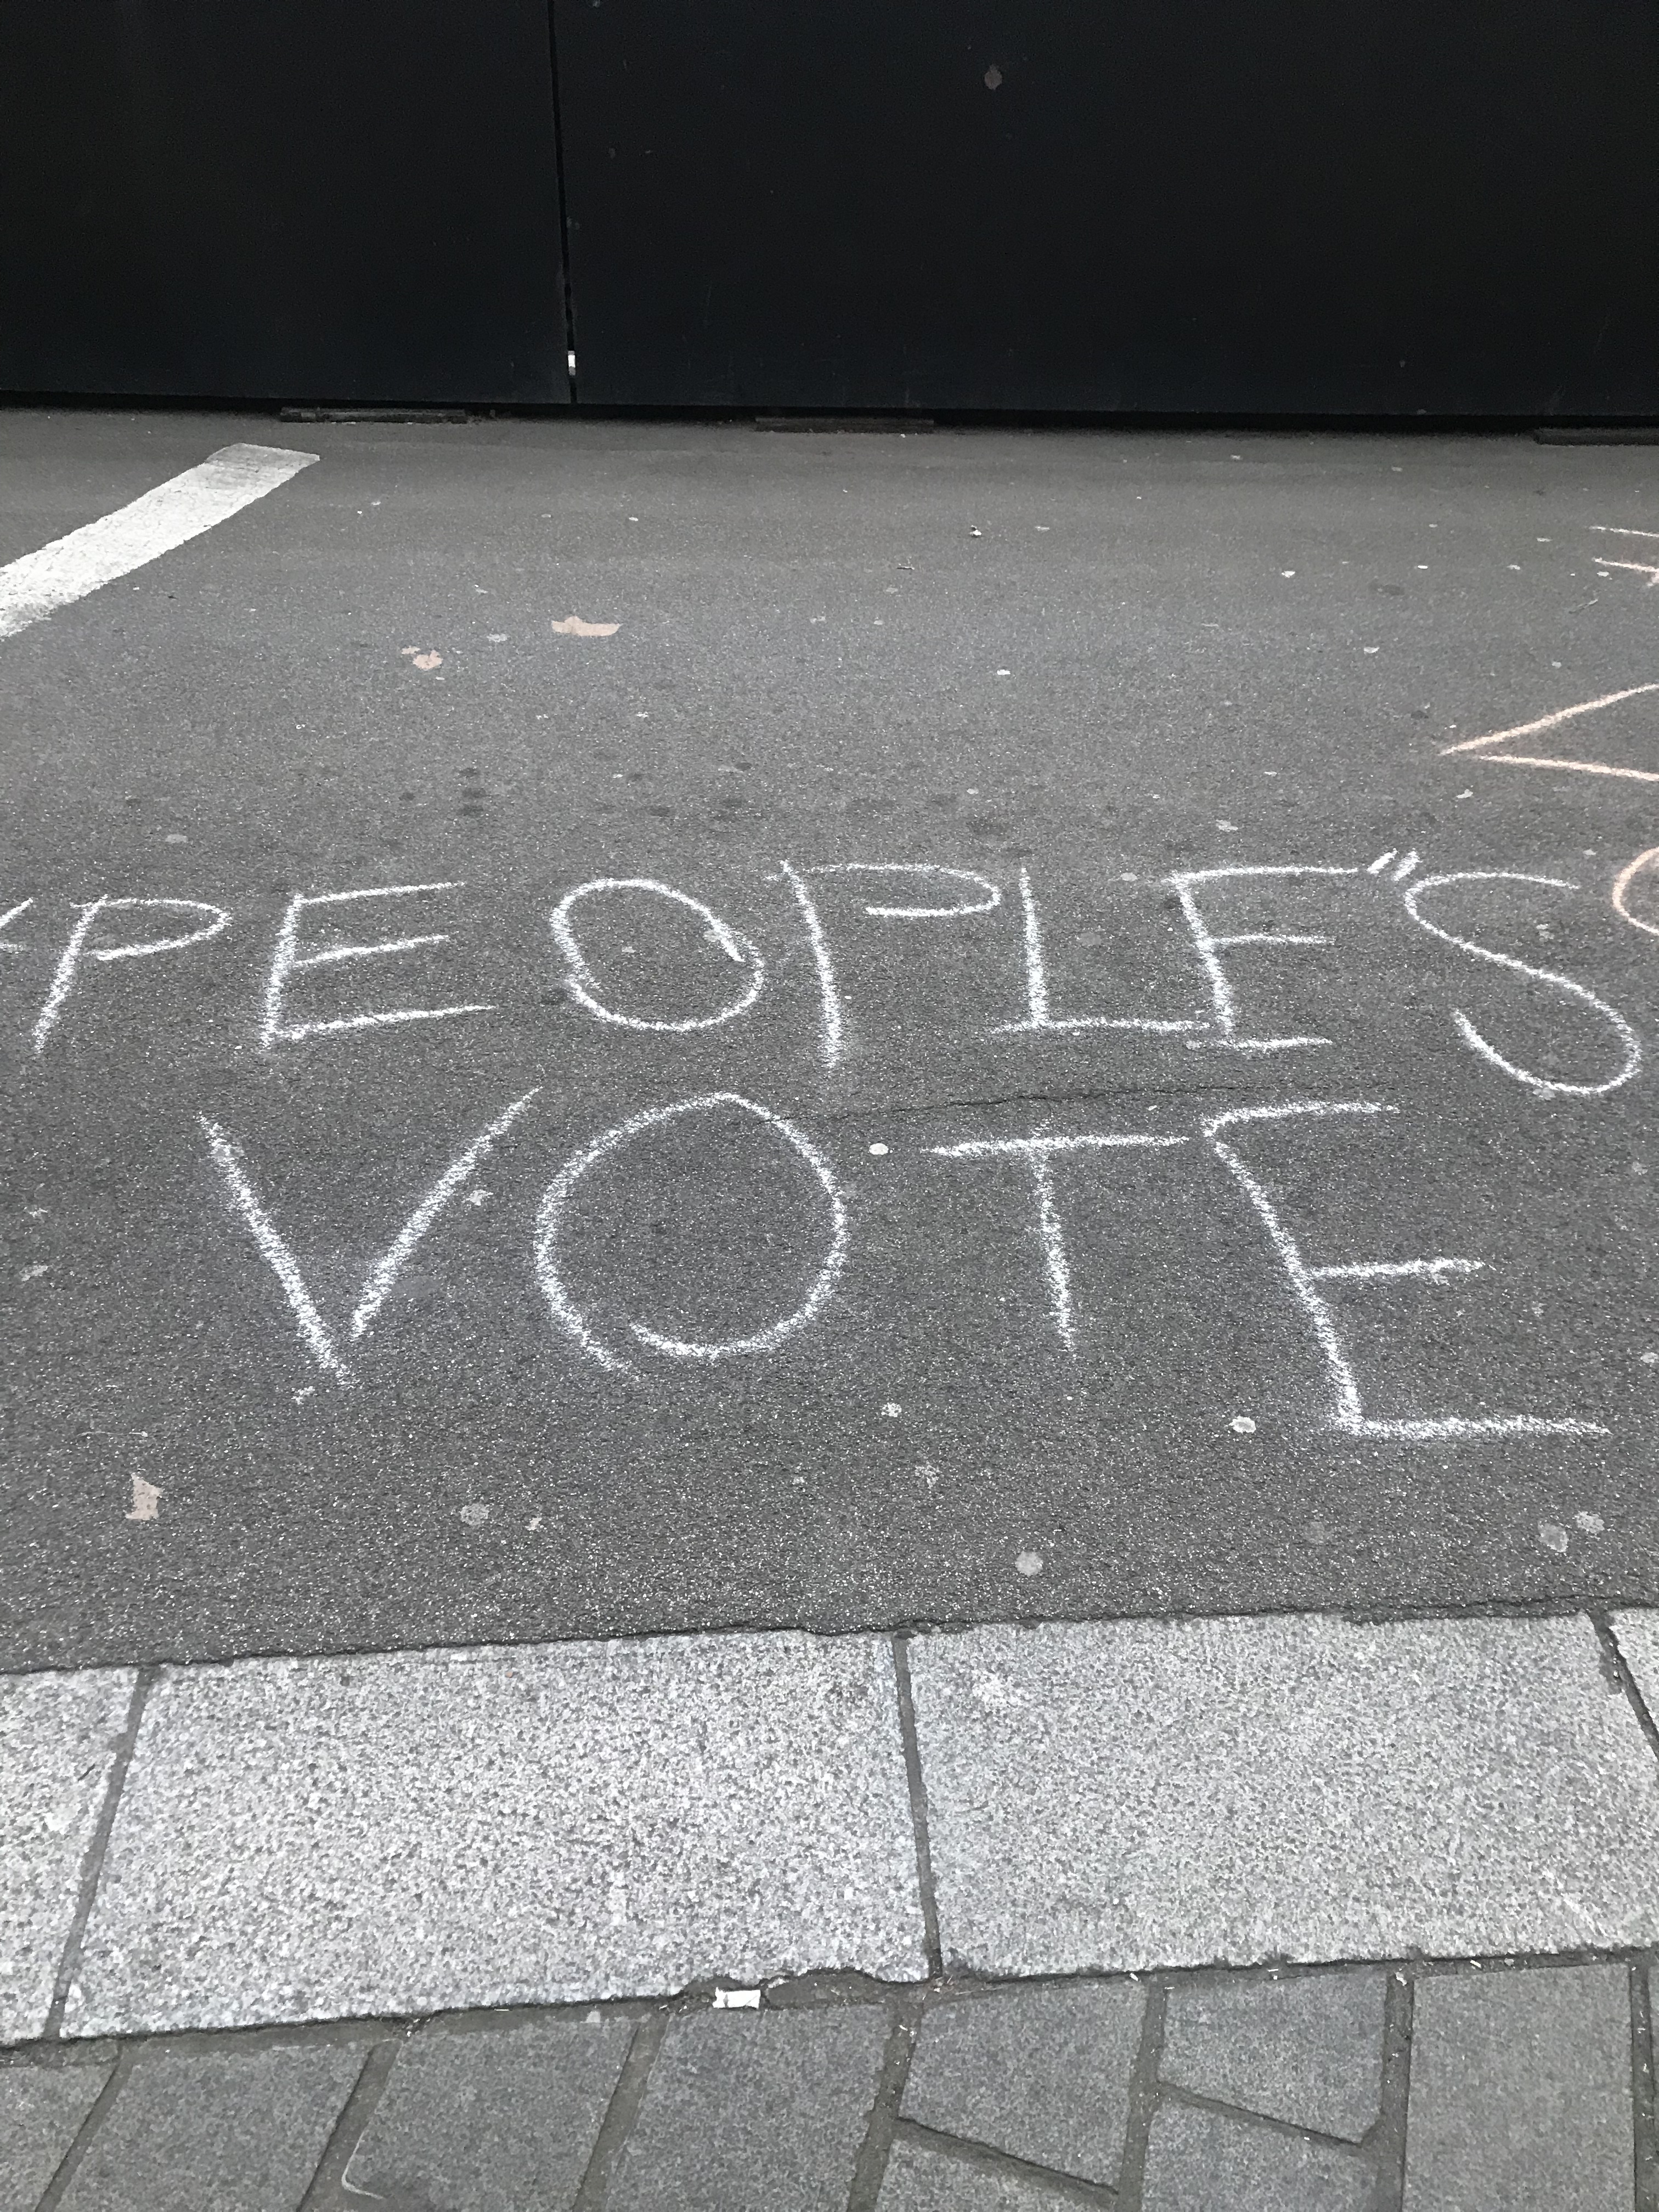 PEOPLE"S
VOTE